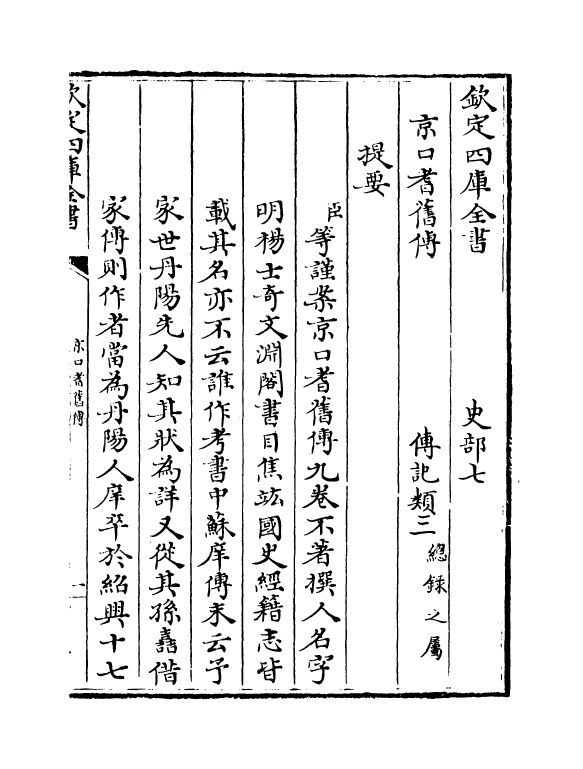 欽定四庫全書　　　　史部七
京口耆舊傳　　　　傳記類三總錄之屬
提要
臣等謹案京口耆舊傳九卷不著撰人名字
明楊士奇文淵閣書目焦竑國史經籍志皆
載其名亦不云誰作考書中蘇庠傳末云予
家世丹陽先人知其狀為詳又從其孫嚞借
家傳則作者當為丹陽人庠卒於紹興十七
欽定四庫全書
京口耆舊傳
一